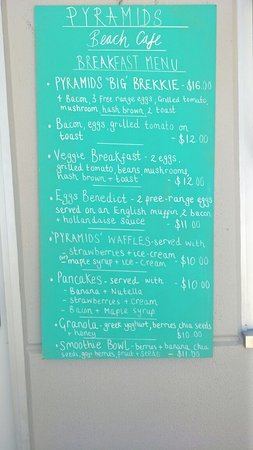 PYRAMIDS
Beach Cafe
BREAKFAST MENU
• PYRAMIDS 'BIG' BREKKIE - $16.00
4 Bacon, 3 free range eggs, Grilled tomato,
mushroom, hash brown, 2 toast
• Bacon, eggs, grilled tomato on
toast - $12.00
• Veggie Breakfast - 2 eggs,
grilled tomato, beans, mushrooms,
hash brown + toast - $12.00
• Eggs Benedict - 2 free-range eggs
served on an English muffin 2 bacon
+ hollandaise sauce - $11.00
• 'PYRAMIDS' WAFFLES - served with
- strawberries + ice-cream
(or) maple syrup + ice-cream - $10.00
• Pancakes - served with - $10.00
- Banana + Nutella
- Strawberries + Cream
- Bacon + Maple Syrup
• Granola - greek yoghurt, berries chia seeds
+ honey $10.00
• Smoothie Bowl - berries + banana chia
seeds, goji berries, fruit + seeds - $11.00